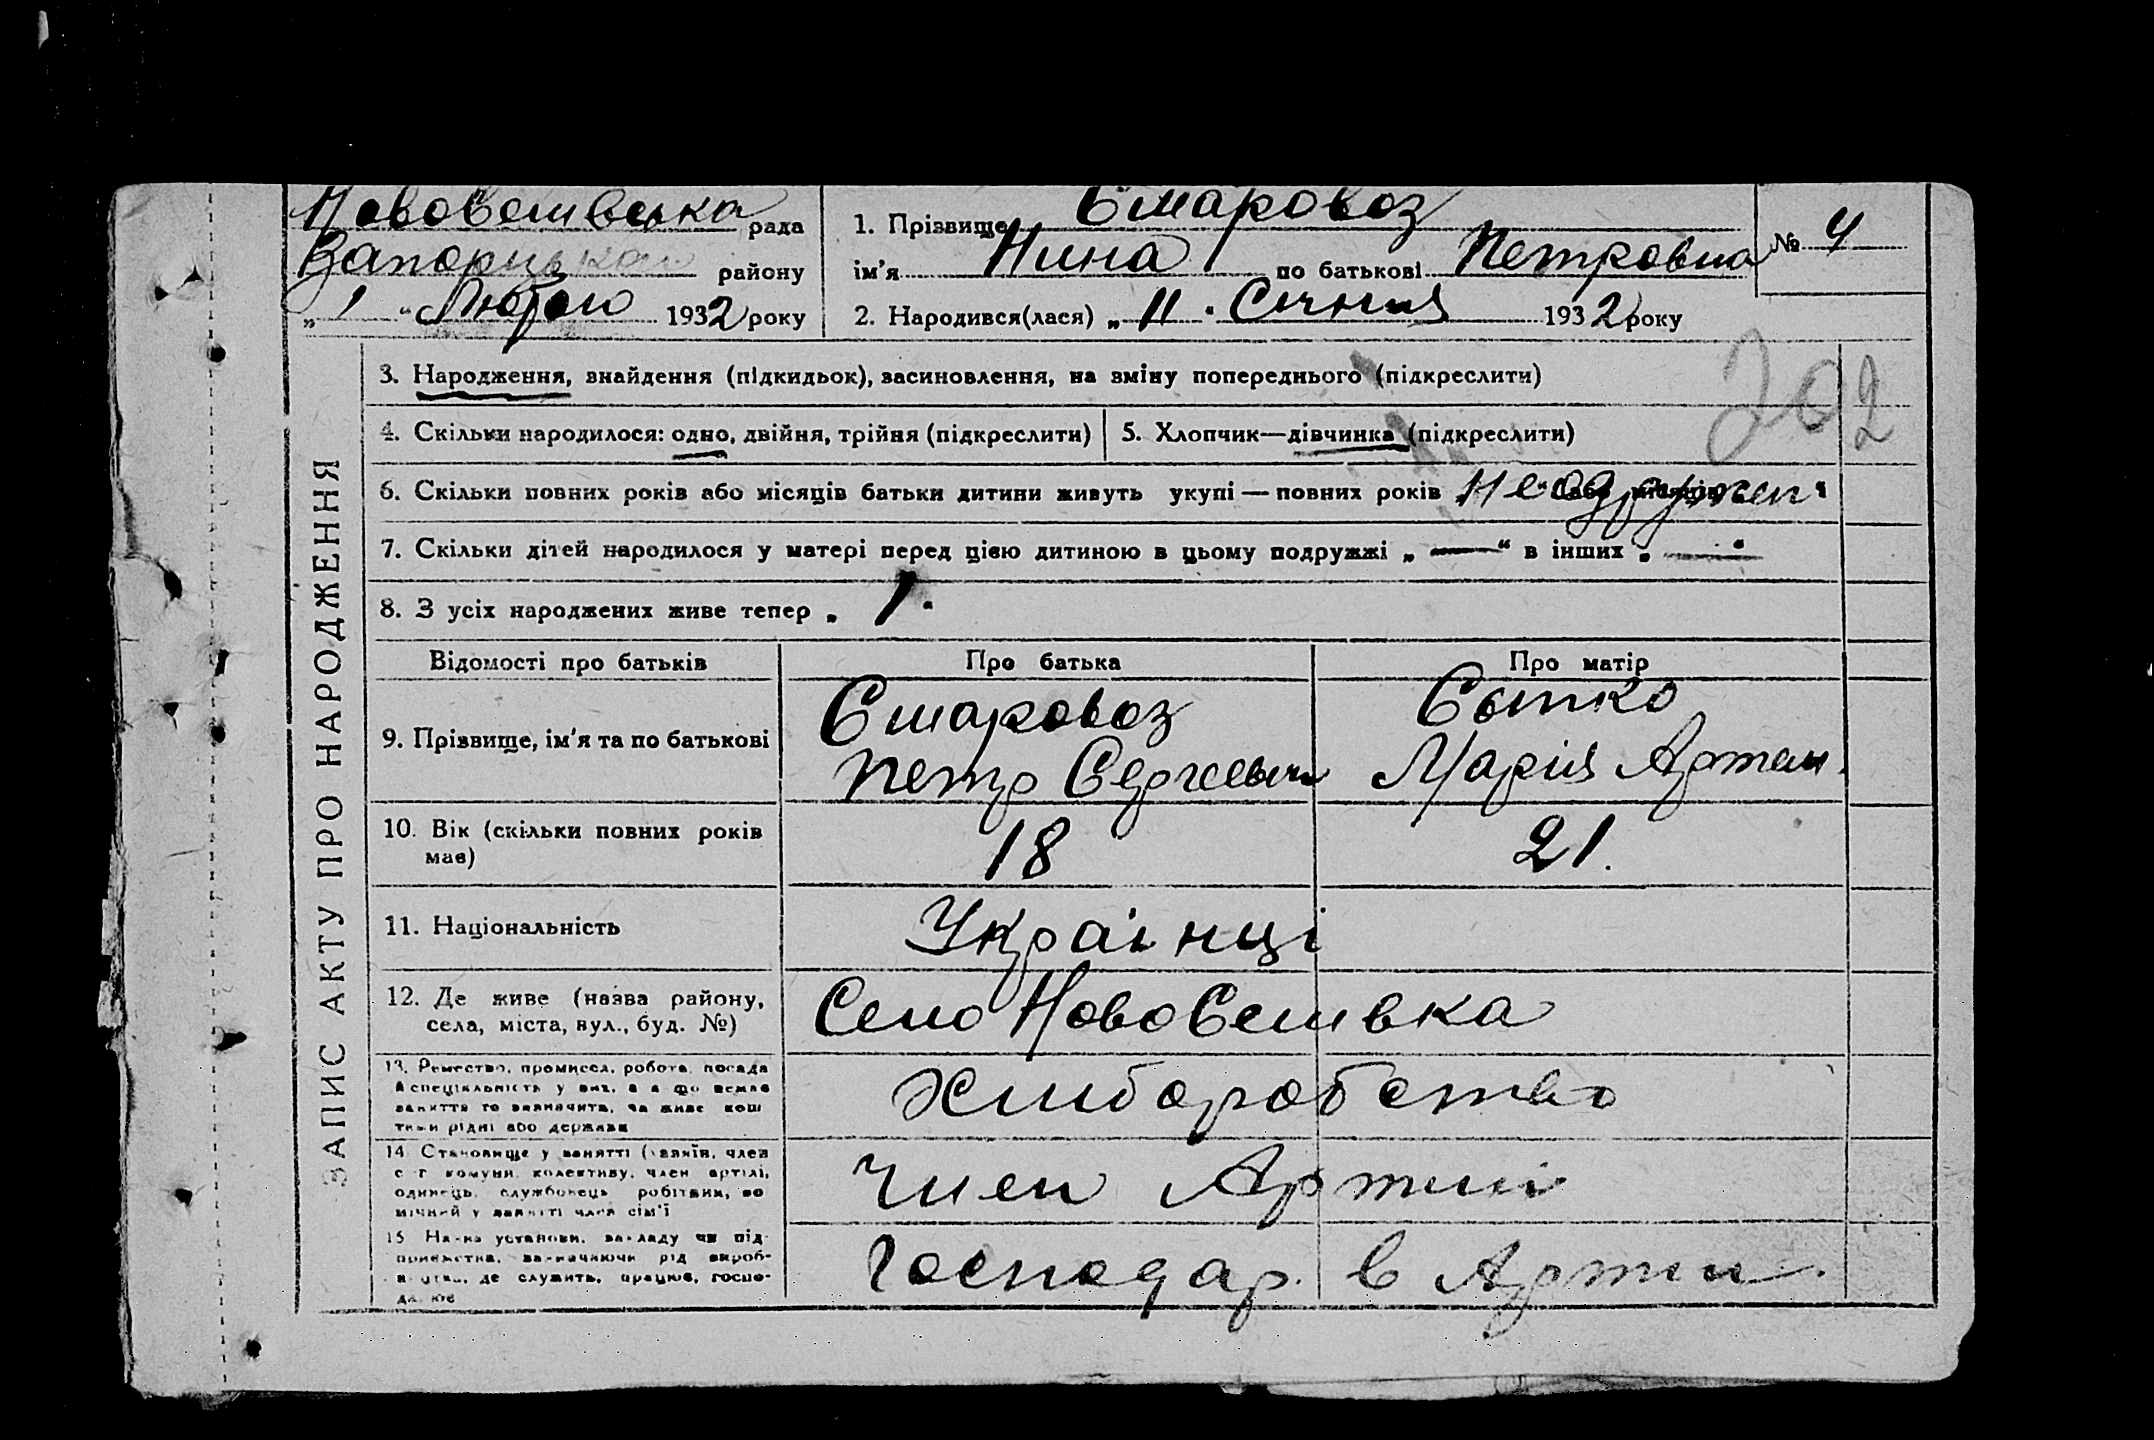 рада
1. Прізвище
№ 4
Запорізького району
ім’я Нина по батькові Петровна
„ 1 “ Лютого 1932 року
2. Народився(лася) „ 11 “ Січня 1932 року
202
ЗАПИС АКТУ ПРО НАРОДЖЕННЯ
3. Народження, знайдення (підкидьок), засиновлення, на зміну попереднього (підкреслити)
4. Скільки народилося: одно, двійня, трійня (підкреслити)
5. Хлопчик—дівчинка (підкреслити)
6. Скільки повних років або місяців батьки дитини живуть укупі — повних років
7. Скільки дітей народилося у матері перед цією дитиною в цьому подружжі „ — “ в інших „ — “
8. З усіх народжених живе тепер „ 1 “
Відомості про батьків
Про батька
Про матір
9. Прізвище, ім’я та по батькові
Петр Сергеевич
Марія Артем.
10. Вік (скільки повних років має)
18
21.
11. Національність
Украінці
12. Де живе (назва району, села, міста, вул., буд. №)
Село
13. Ремество, промисел, робота, посада й спеціяльність у них, а якщо немає заняття то зазначити, чи живе кошти рідні або держави
Хліборобство
14. Становище у занятті (хазяїн, член с-г комуни, колективу, член артілі, одинець, службовець, робітник, помічний у занятті член сім’ї
Член Артілі
15. Назва установи, закладу чи підприємства, зазначаючи рід виробництва, де служить, працює, господарює
Господар. в Артіл.